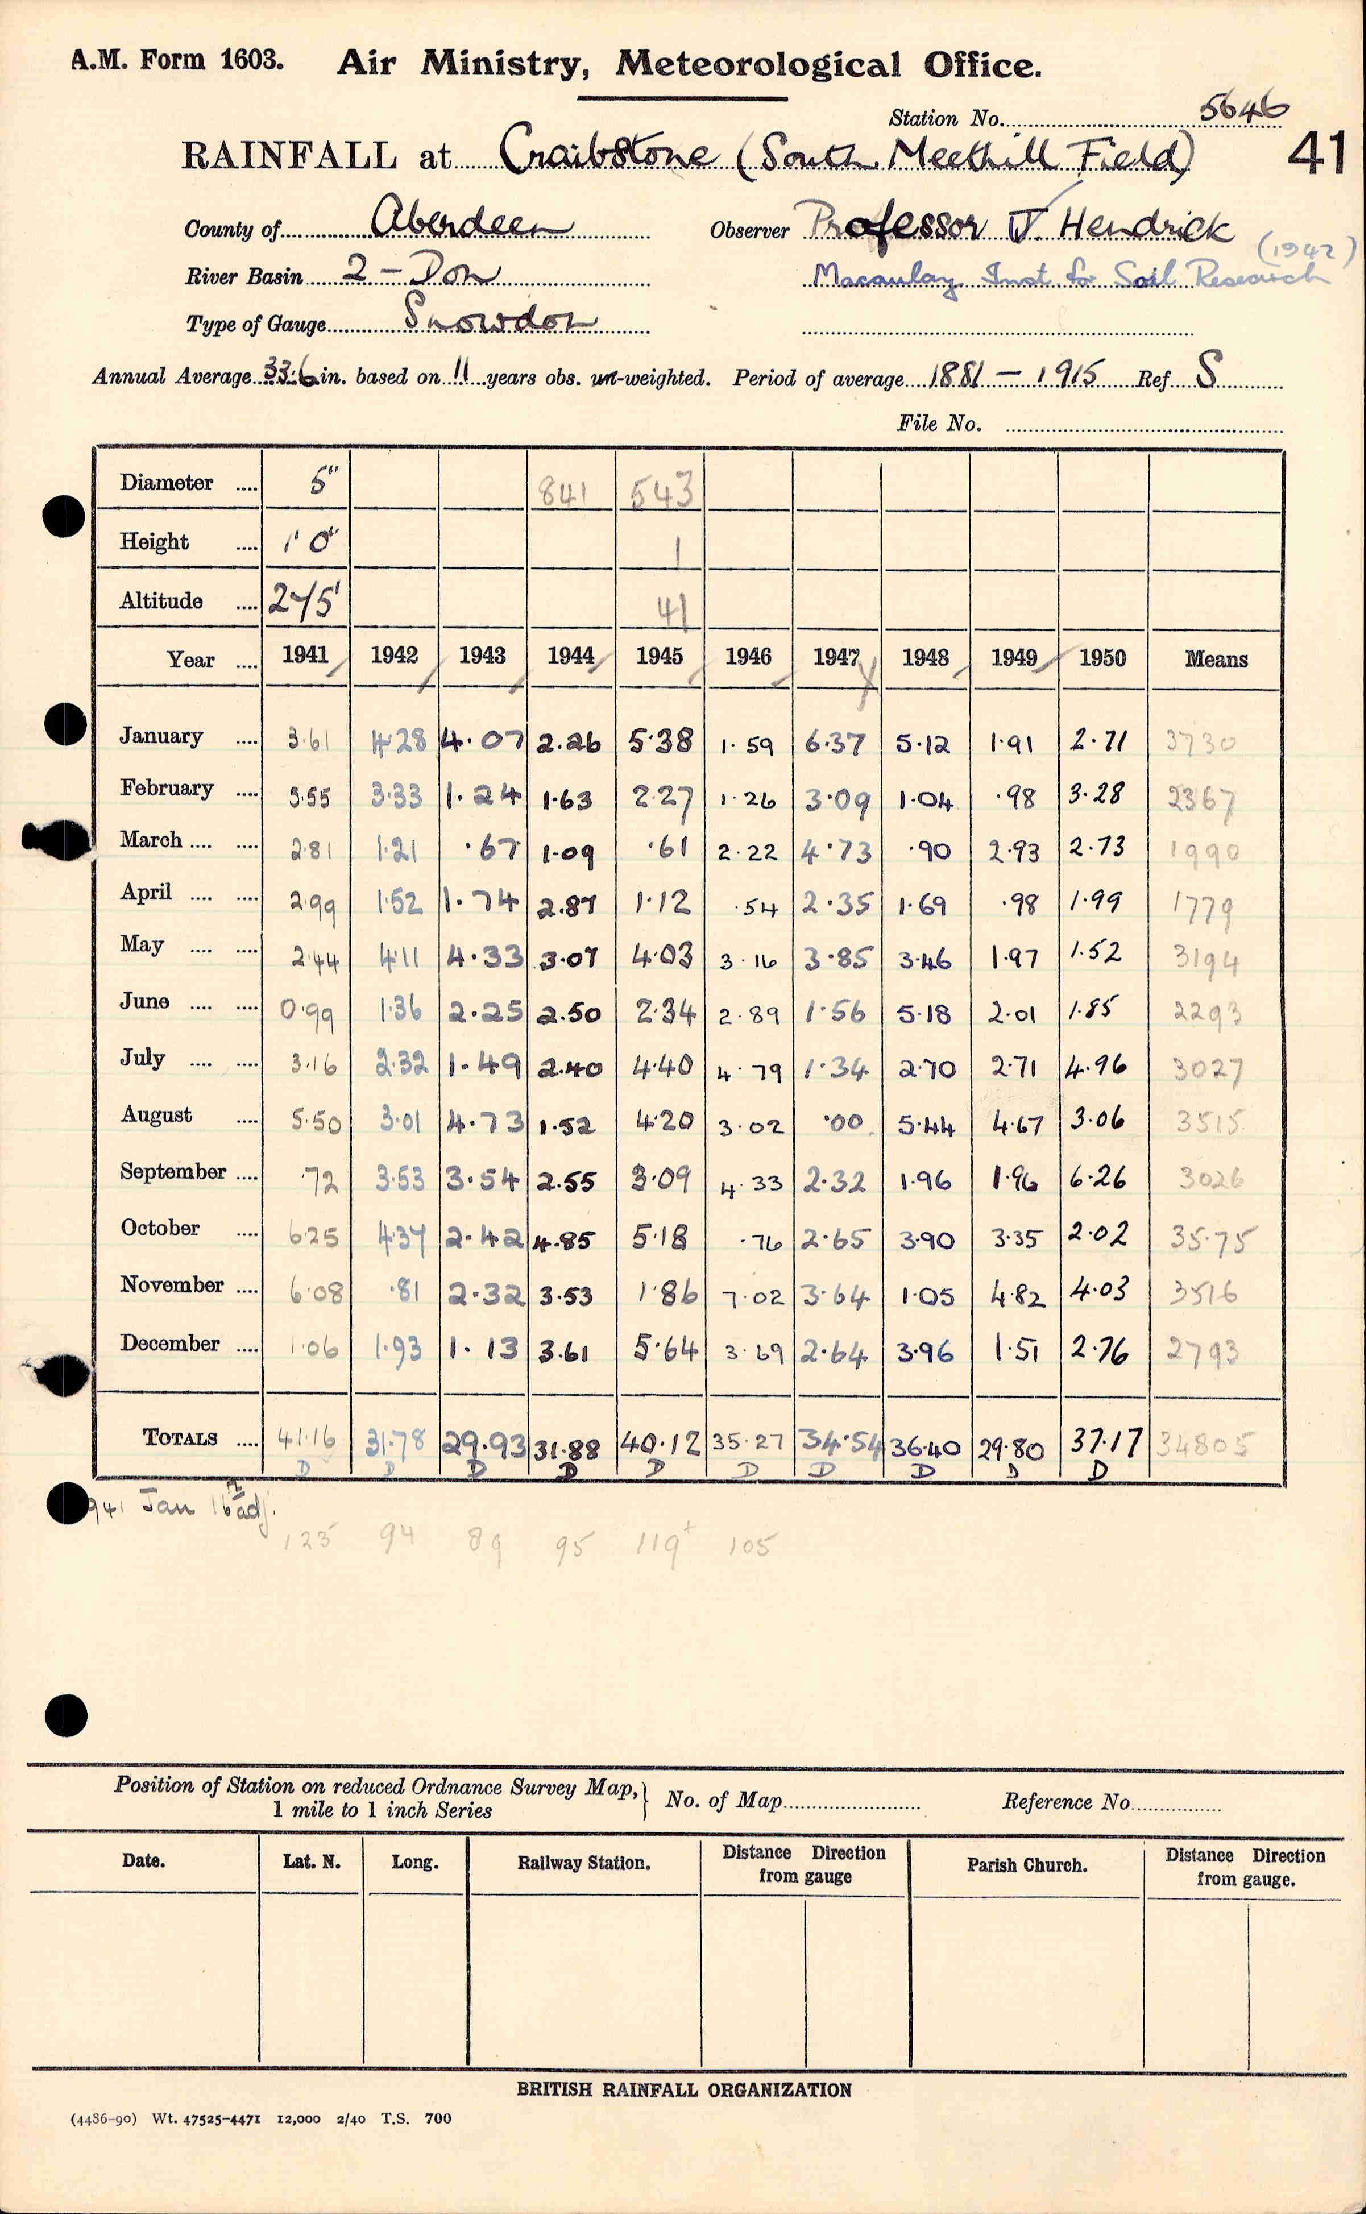 A.M. Form 1603. Air Ministry, Meteorological Office.
Station No. 5646
RAINFALL at Craibstone (South Meethill Field) 41
County of Aberdeen Observer Professor J. Hendrick
River Basin 2 - Don Macaulay Inst for Soil Research (1942)
Type of Gauge Snowdon
Annual Average 33.6 in. based on 11 years obs. un-weighted. Period of average 1881 - 1915 Ref S
File No.
Diameter .... 5" 841 543
Height .... 1' 0" 1
Altitude .... 275' 41
Year .... 1941 1942 1943 1944 1945 1946 1947 1948 1949 1950 Means
January .... 3.61 4.28 4.07 2.26 5.38 1.59 6.37 5.12 1.91 2.71 3730
February .... 5.55 3.33 1.24 1.63 2.27 1.26 3.09 1.04 .98 3.28 2367
March .... .... 2.81 1.21 .67 1.09 .61 2.22 4.73 .90 2.93 2.73 1990
April .... .... 2.99 1.52 1.74 2.87 1.12 .54 2.35 1.69 .98 1.99 1779
May .... .... 2.44 4.11 4.33 3.07 4.03 3.16 3.85 3.46 1.97 1.52 3194
June .... .... 0.99 1.36 2.25 2.50 2.34 2.89 1.56 5.18 2.01 1.85 2293
July .... .... 3.16 2.32 1.49 2.40 4.40 4.79 1.34 2.70 2.71 4.96 3027
August .... 5.50 3.01 4.73 1.52 4.20 3.02 .00 5.44 4.67 3.06 3515
September .... .72 3.53 3.54 2.55 3.09 4.33 2.32 1.96 1.96 6.26 3026
October .... 6.25 4.37 2.42 4.85 5.18 .76 2.65 3.90 3.35 2.02 35.75
November .... 6.08 .81 2.32 3.53 1.86 7.02 3.64 1.05 4.82 4.03 3516
December .... 1.06 1.93 1.13 3.61 5.64 3.69 2.64 3.96 1.51 2.76 2793
TOTALS .... 41.16 31.78 29.93 31.88 40.12 35.27 34.54 36.40 29.80 37.17 34805
D D D D D D D D D D
941 Jan 16 adj.
123 94 89 95 119+ 105
Position of Station on reduced Ordnance Survey Map,
1 mile to 1 inch Series } No. of Map Reference No.
Date. Lat. N. Long. Railway Station. Distance Direction from gauge Parish Church. Distance Direction from gauge.
BRITISH RAINFALL ORGANIZATION
(4486-90) Wt. 47525-4471 12,000 2/40 T.S. 700